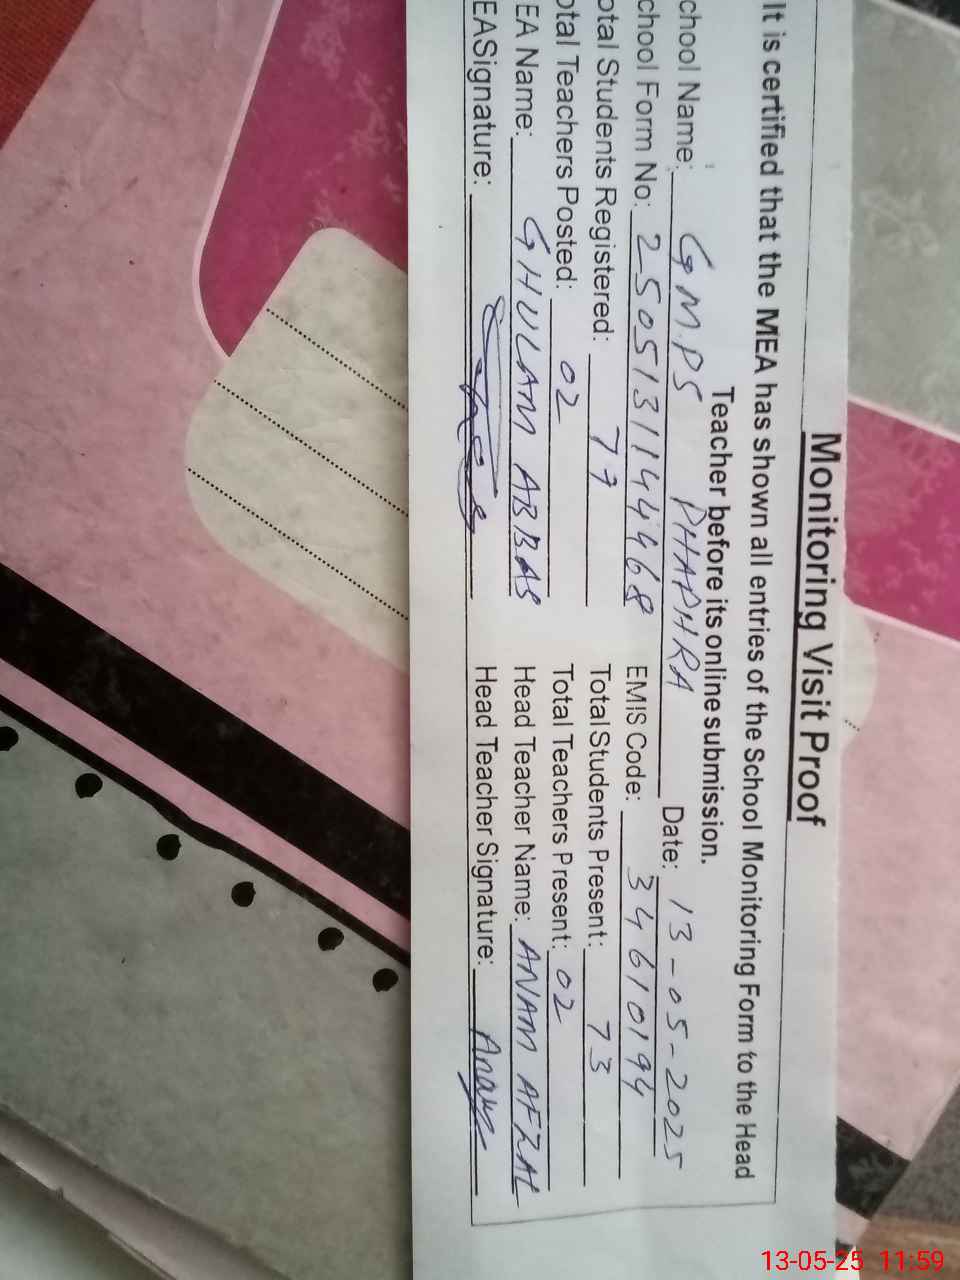 Monitoring Visit Proof
It is certified that the MEA has shown all entries of the School Monitoring Form to the Head
Teacher before its online submission.
chool Name: G M.P S PHAPHRA Date: 13-05-2025
chool Form No: 250513114468 EMIS Code: 34610194
otal Students Registered: 77 Total Students Present: 73
otal Teachers Posted: 02 Total Teachers Present: 02
EA Name: GHULAM ABBAS Head Teacher Name: ANAM AFZAL
EASignature: Head Teacher Signature: Anam
13-05-25 11:59